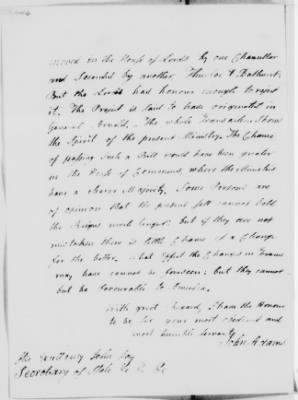 moved in the House of Lords by one Chancellor
and seconded by another, Thurlow & Bathurst.
But the Lords had honour enough to reject
it. The Project is said to have originated in
General Arnold. The whole Transaction shows
the Spirit of the present Ministry. The Chance
of passing such a Bill would have been greater
in the House of Commons, where the Minister
have a clearer Majority. Some Persons are
of opinion that the present sett cannot hold
the Reigns much longer. but if they are not
mistaken there is little Chance of a Change
for the better. what Effect the Changes in France
may have cannot be foreseen: but they cannot
but be favourable to America.
With great Regard, I have the Honour
to be Sir your most obedient and
most humble Servant
John Adams
His Excellency John Jay
Secretary of State